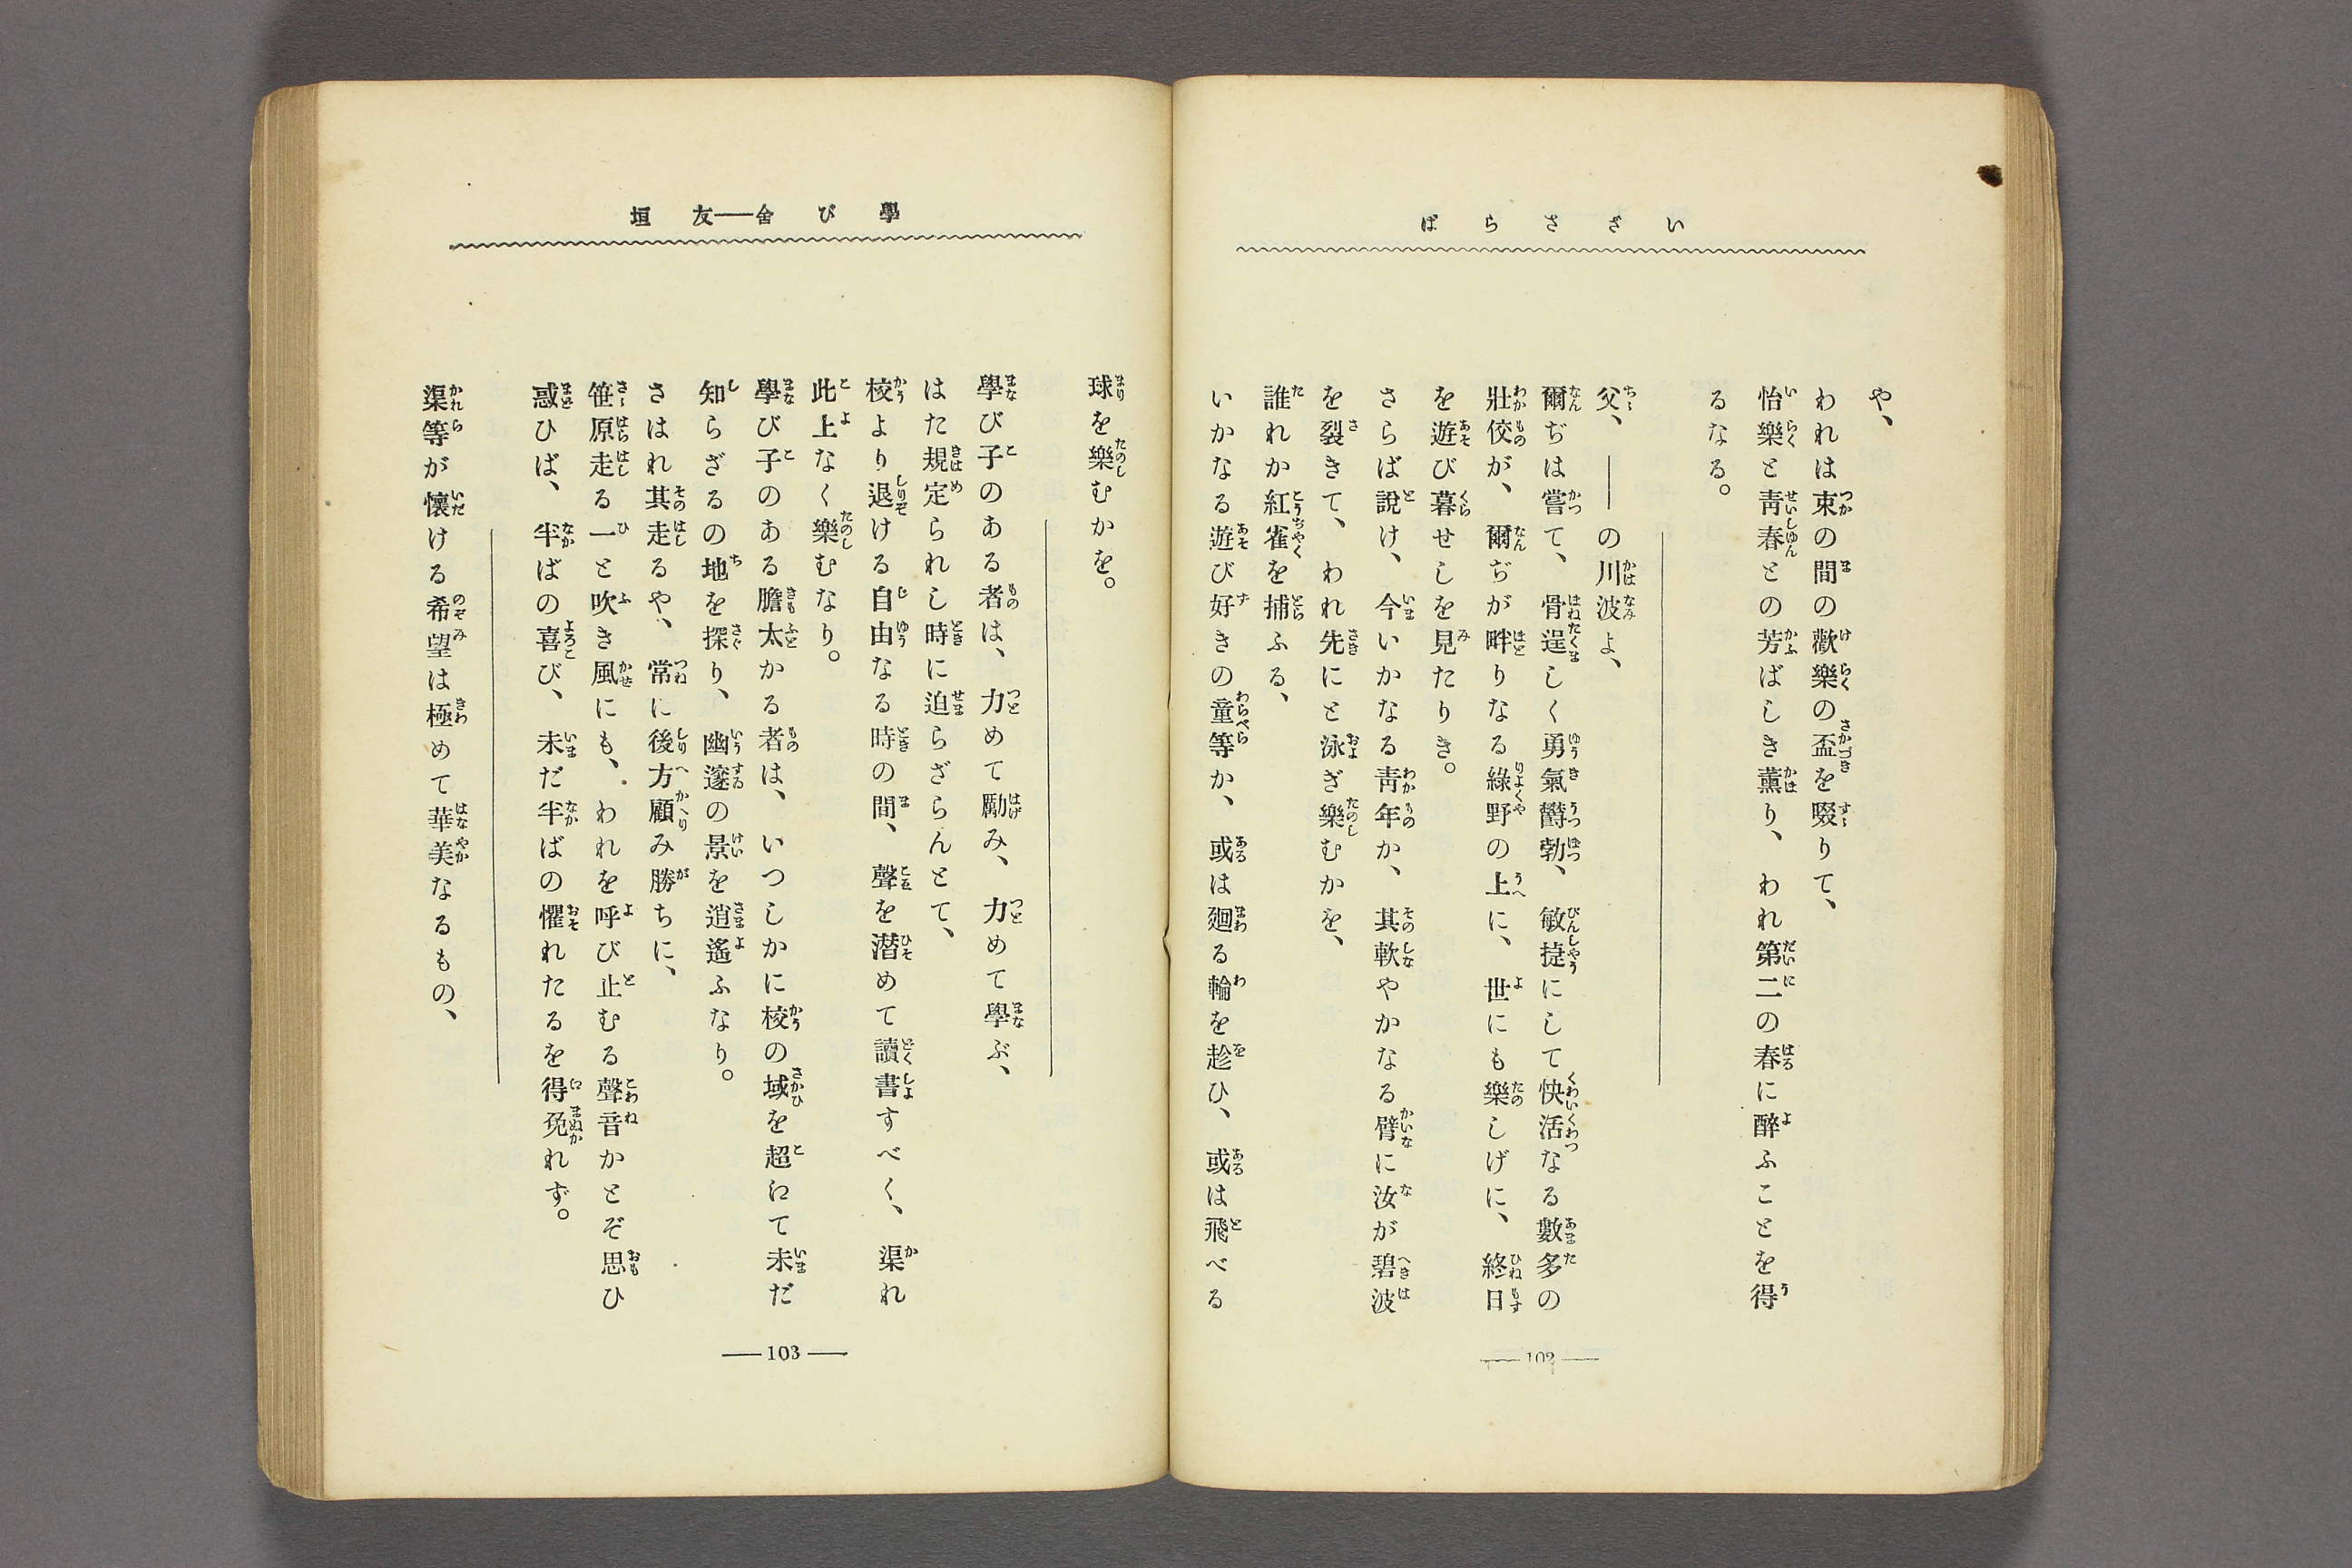 いさゞさらば
や、
われは束の間の歡樂の盃を啜りて、
怡樂と靑春との芳ばしき薫り、われ第二の春に醉ふことを得
るなる。
父、――の川波よ、
爾ぢは嘗て、骨逞しく勇氣欝勃、敏捷にして快活なる數多の
壯佼が、爾ぢが畔りなる綠野の上に、世にも樂しげに、終日
を遊び暮せしを見たりき。
さらば說け、今いかなる靑年か、其軟やかなる臂に汝が碧波
を裂きて、われ先にと泳ぎ樂むかを、
誰れか紅雀を捕ふる、
いかなる遊び好きの童等か、或は廻る輪を趁ひ、或は飛べる
― 102 ―
學び舍――友垣
球を樂むかを。
學び子のある者は、力めて勵み、力めて學ぶ、
はた規定られし時に迫らざらんとて、
校より退ける自由なる時の間、聲を潜めて讀書すべく、渠れ
此上なく樂むなり。
學び子のある膽太かる者は、いつしかに校の域を超えて未だ
知らざるの地を探り、幽邃の景を逍遙ふなり。
さはれ其走るや、常に後方顧み勝ちに、
笹原走る一と吹き風にも、われを呼び止むる聲音かとぞ思ひ
惑ひば、半ばの喜び、未だ半ばの懼れたるを得免れず。
渠等が懷ける希望は極めて華美なるもの、
― 103 ―